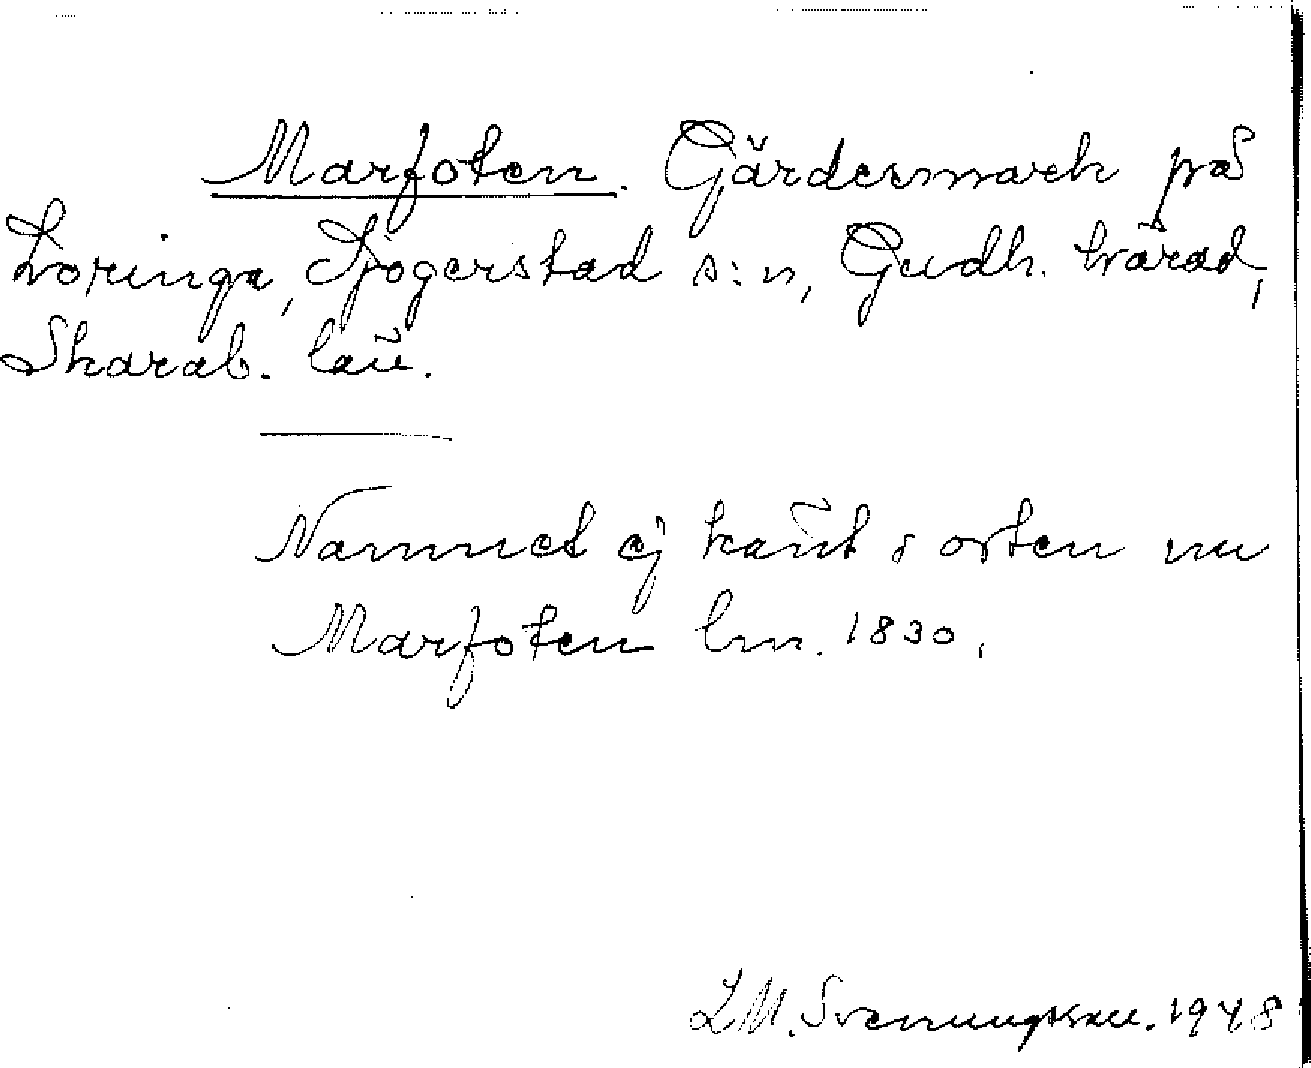 Marfoten. Gärdesmark på
Loringa, Sjogerstad s:n, Gudh. härad,
Skarab. län.
Namnet ej känt i orten nu
Marfoten lm. 1830.
L M. Svenungsson. 1948